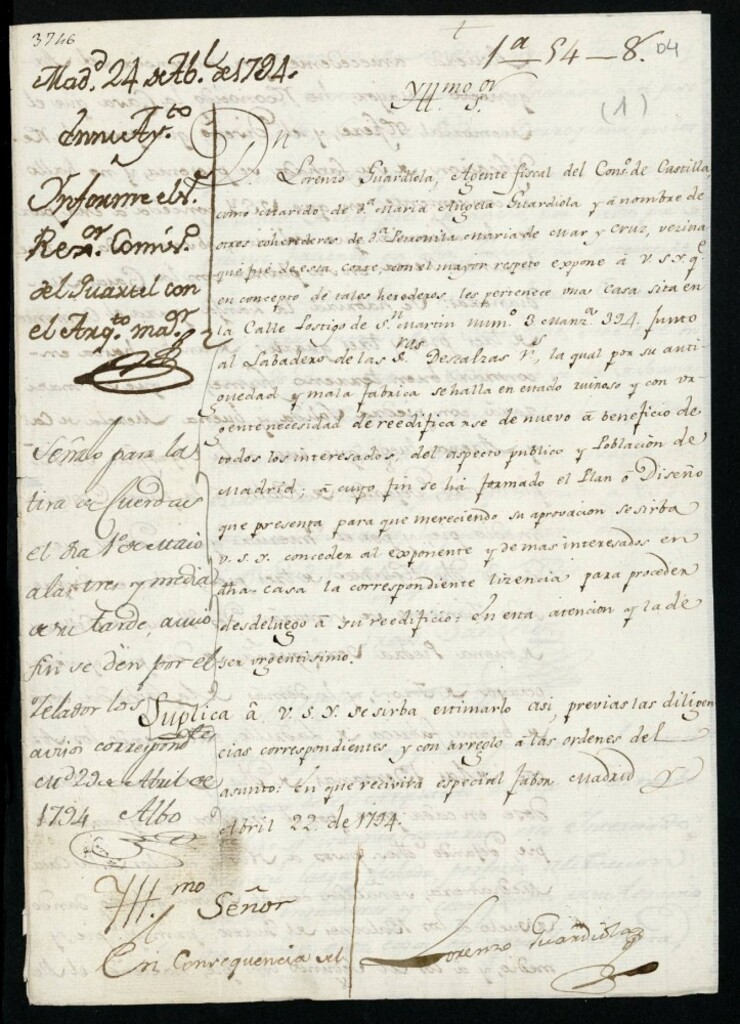 3746
1ª 54-8.
04
(1)
Mad.d 24 de Ab.l de 1794.
En su Ay.to
Informe el S.r
Rex.or Comis.o
del Quartel con
el Arq.to ma.or
Señalo para la
tira de Cuerdas
el dia 1º de Maio
a las tres y media
de su tarde, a cuio
fin se den por el
Zelador los
avisos correspond.tes
M.d 29 de Abril de
1794 Albo
Yll.mo S.or
Dn Lorenzo Guardiola, Agente fiscal del Cons.o de Castilla,
como marido de D.ª Maria Angela Guardiola y á nombre de
otros coherederos de D.ª Petronila Maria de Mar y Cruz, vezina
que fué de esta Corte, con el mayor respeto expone á V.S.Y. q.e
en concepto de tales herederos, les pertenece una Casa sita en
la Calle Postigo de S.n Martin num.o 3 Manz.a 394. junto
al Labadero de las S.ras Descalzas R.s, la qual por su anti-
guedad y mala fabrica se halla en estado ruinoso y con ur-
gente necesidad de reedificarse de nuevo á beneficio de
todos los interesados, del aspecto publico y Poblacion de
Madrid; á cuyo fin se há formado el Plan ó Diseño
que presenta para que mereciendo su aprovacion se sirba
V.S.Y. conceder al exponente y demas interesados en
dha casa la correspondiente lizencia para proceder
desde luego á su reedificio: En esta atencion y la de
ser urgentisimo.
Suplica á V.S.Y. se sirba estimarlo asi, previas las diligen
cias correspondientes y con arreglo a las ordenes del
asunto: en que recivirá especial fabor Madrid y
Abril 22 de 1794.
Lorenzo Guardiola
Yll.mo Señor
En Consequencia del